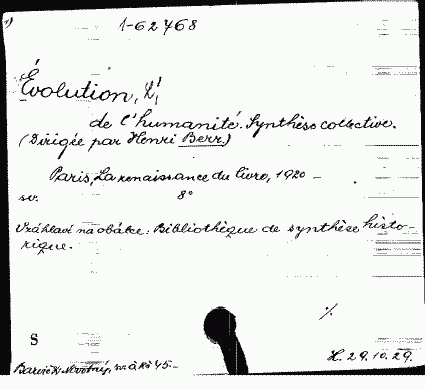 1-62768
Évolution, L',
de l'humanité. Synthèse collective.
(Dirigée par Henri Berr.)
Paris, La renaissance du livre, 1920 –
sv. 8°
V záhlaví na obálce: Bibliothèque de synthèse histo-
rique.
%
S
H. 29.10.29.
Barvič & Novotný, 45.–